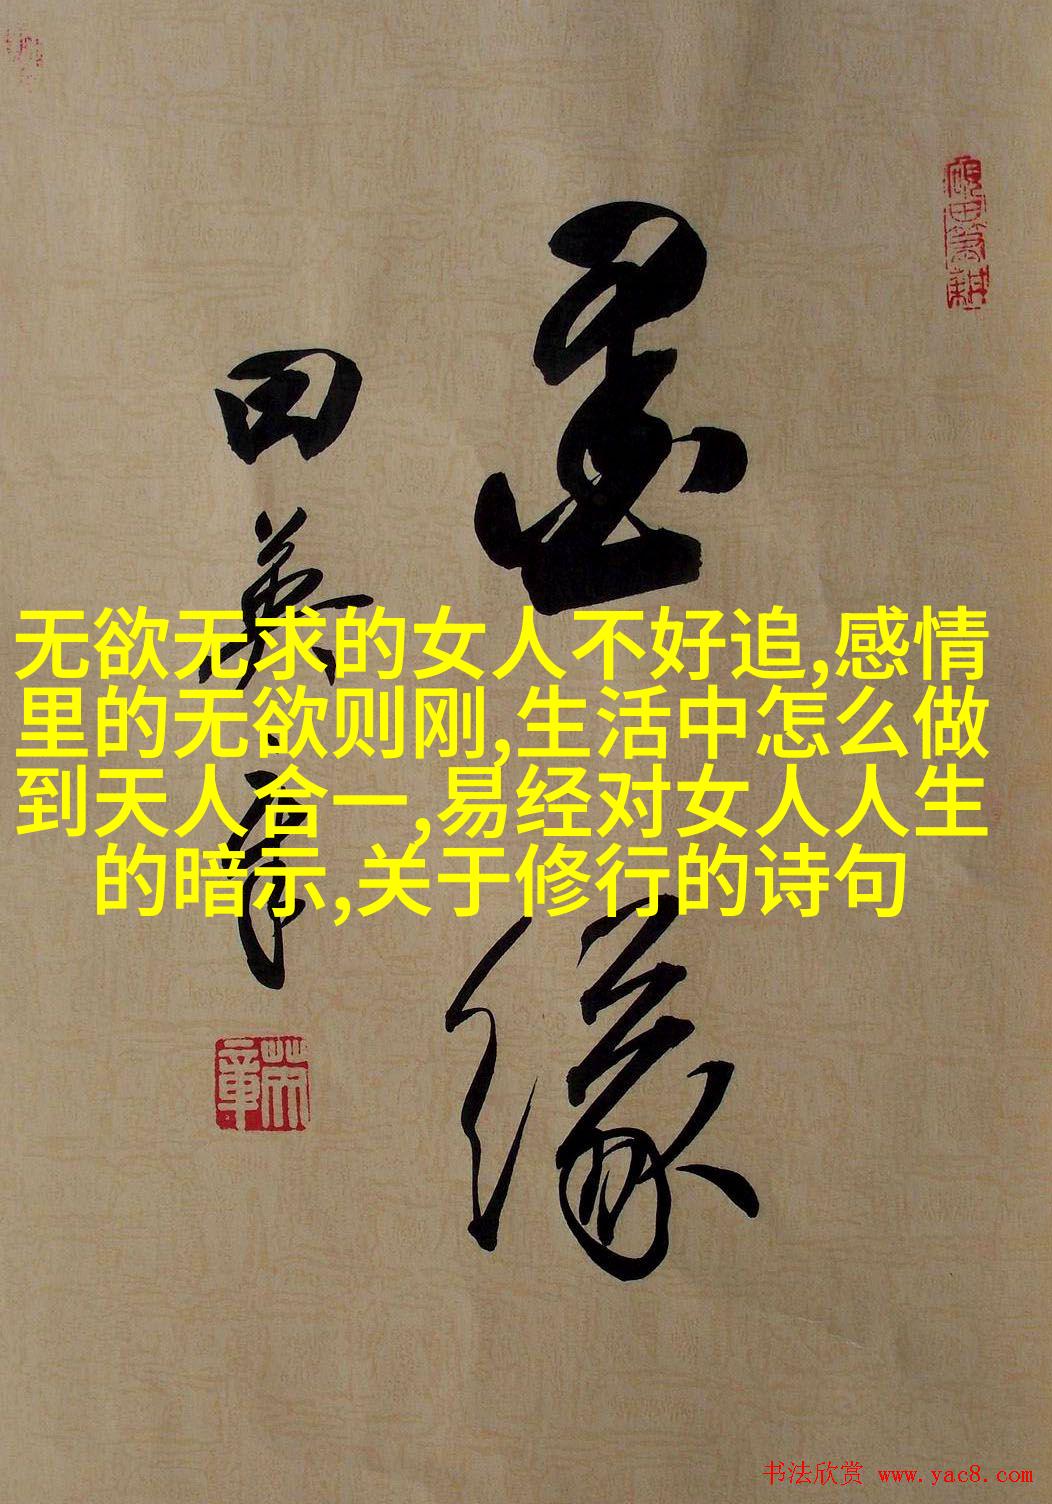 墨缘
田英章
英章
无欲无求的女人不好追,感情
里的无欲则刚,生活中怎么做
到天人合一,易经对女人人生
的暗示,关于修行的诗句
书法欣赏 www.yac8.com